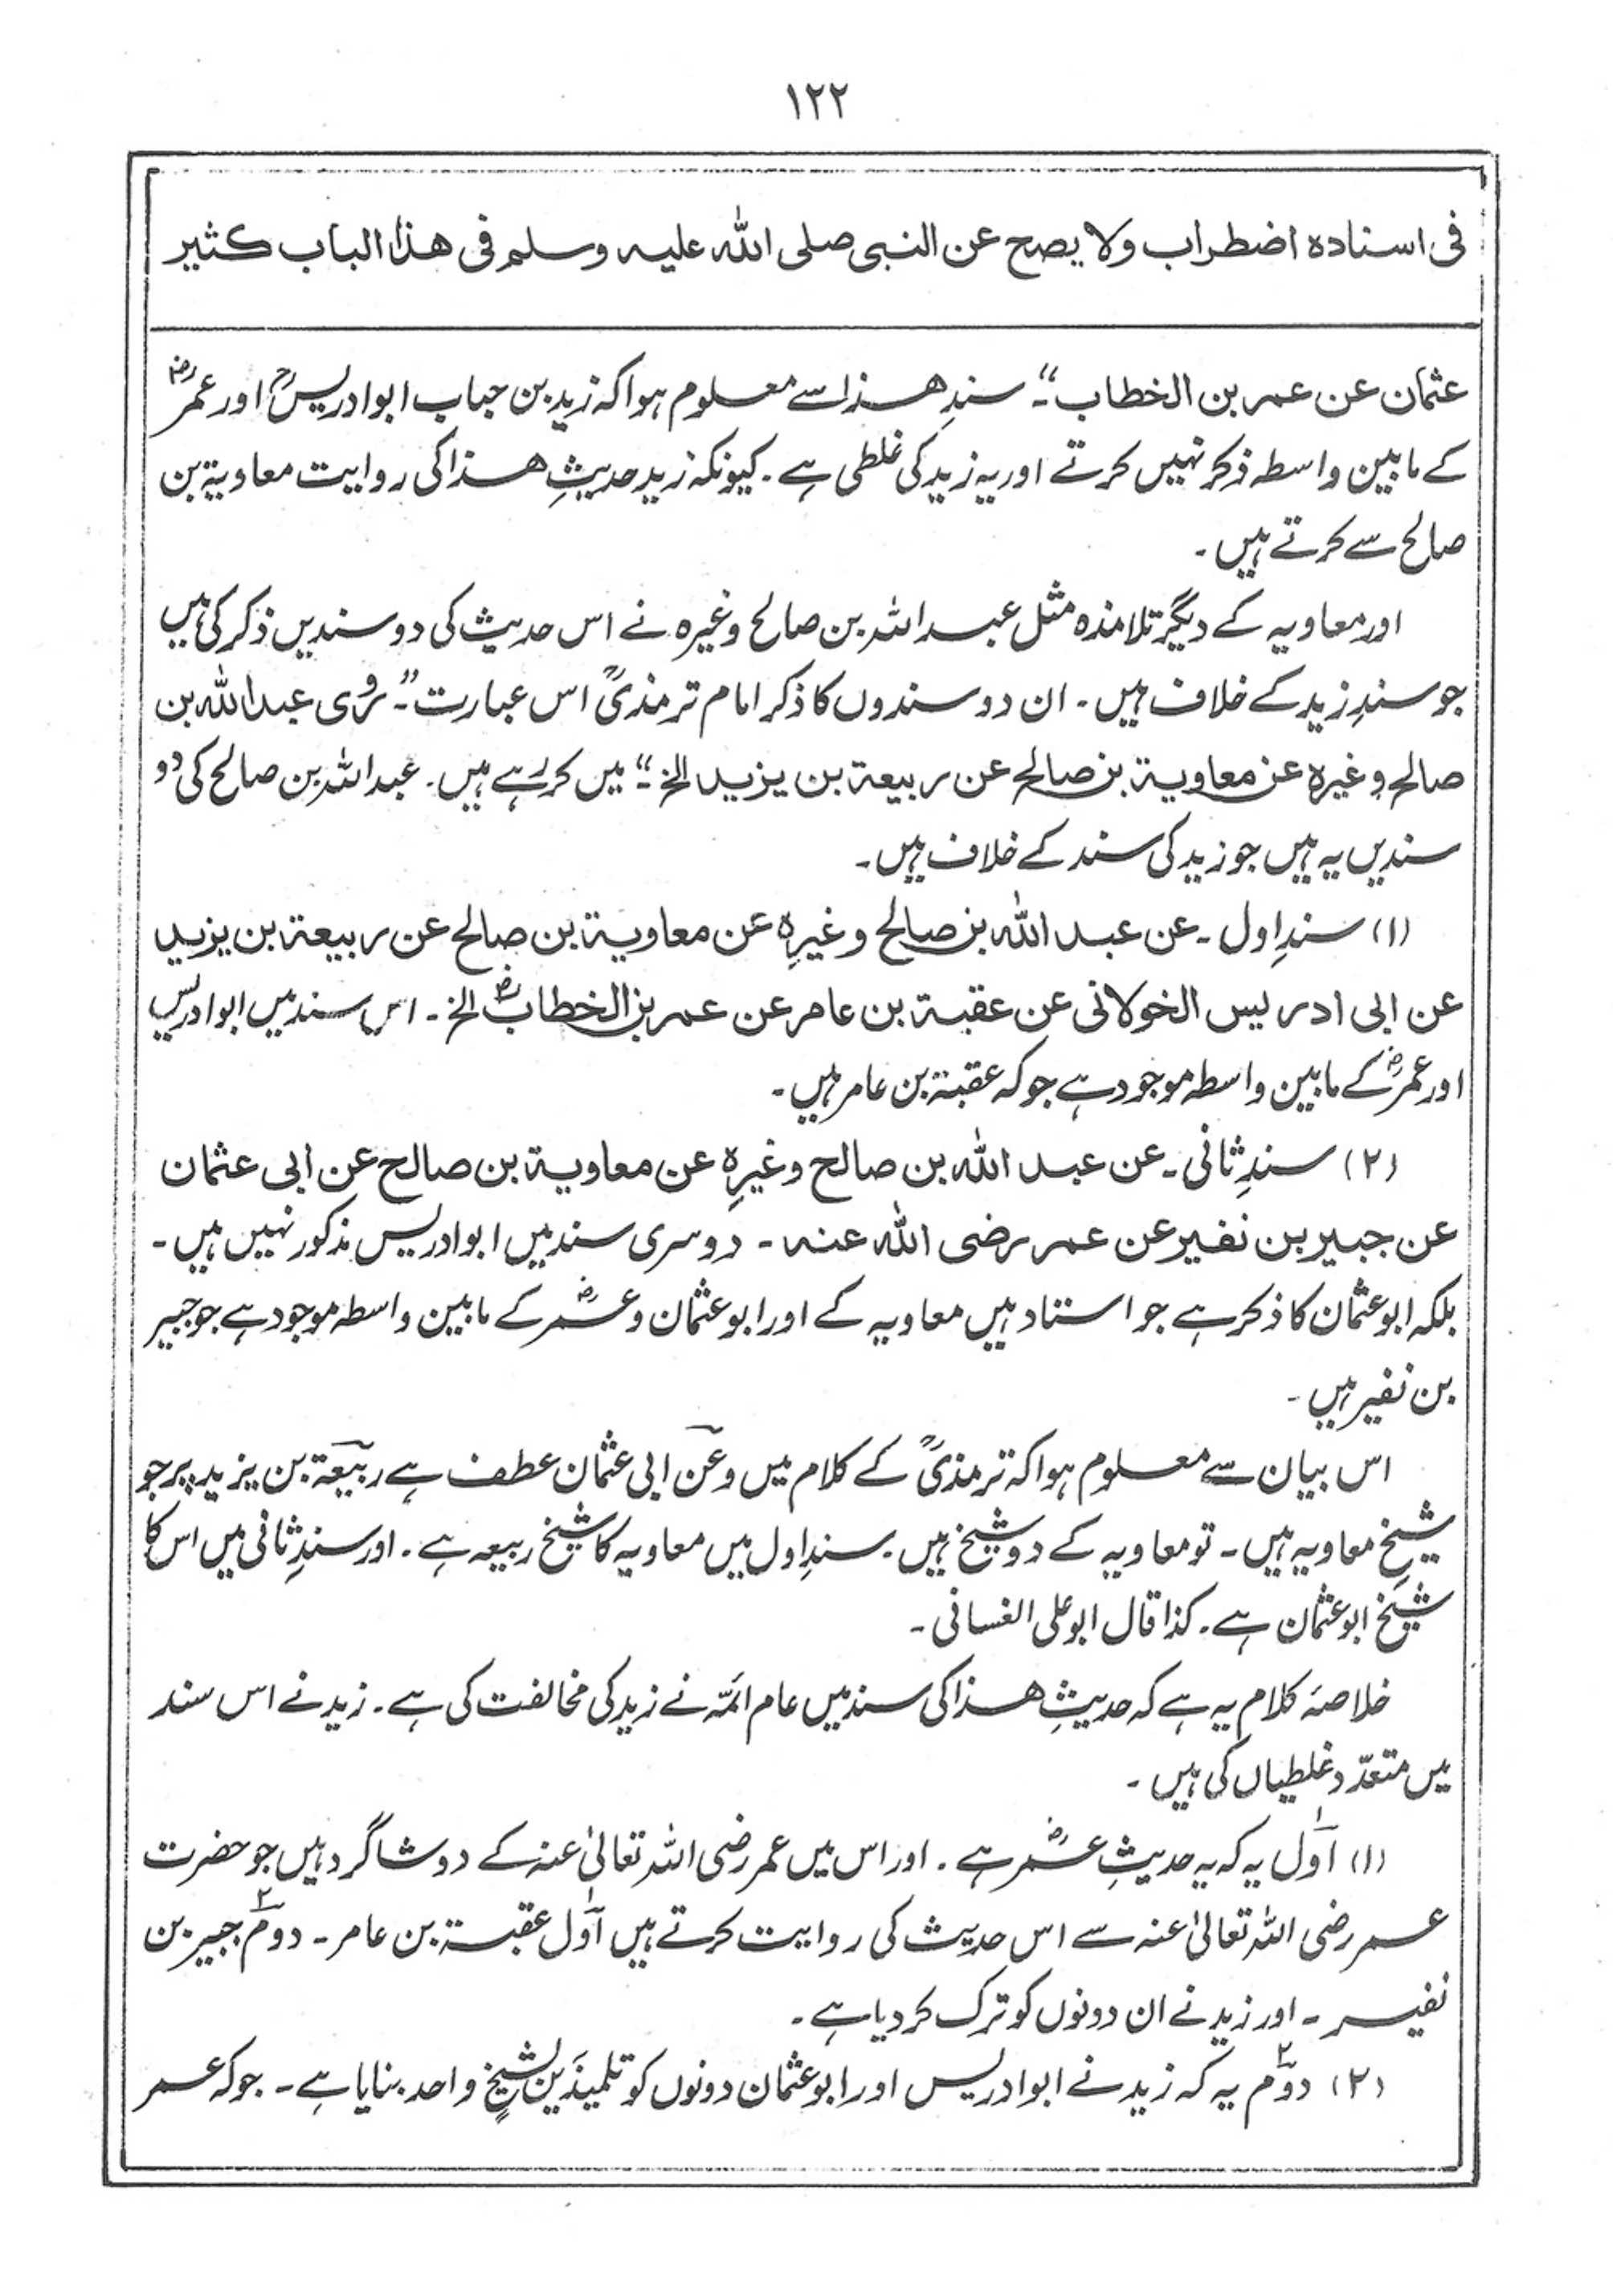 ١٢٢
فی اسنادہ اضطراب ولا یصح عن النبی صلی اللہ علیہ وسلم فی ھذا الباب کثیر
عثمان عن عمر بن الخطاب“۔ سندِ ھذا سے معلوم ہوا کہ زید بن حباب ابو ادریسؒ اور عمرؓ
کے مابین واسطہ ذکر نہیں کرتے اور یہ زید کی غلطی ہے۔ کیونکہ زید حدیثِ ھذا کی روایت معاویۃ بن
صالح سے کرتے ہیں۔
اور معاویہ کے دیگر تلامذہ مثل عبد اللہ بن صالح وغیرہ نے اس حدیث کی دو سندیں ذکر کی ہیں
جو سندِ زید کے خلاف ہیں۔ ان دو سندوں کا ذکر امام ترمذیؒ اس عبارت ”۔ رُوی عبد اللہ بن
صالح وغیرہ عن معاویۃ بن صالح عن ربیعۃ بن یزید الخ“۔ میں کر رہے ہیں۔ عبد اللہ بن صالح کی دو
سندیں یہ ہیں جو زید کی سند کے خلاف ہیں۔
(۱) سندِ اول۔ عن عبد اللہ بن صالح وغیرِہ عن معاویۃ بن صالح عن ربیعۃ بن یزید
عن ابی ادریس الخولانی عن عقبۃ بن عامر عن عمر بن الخطابؓ الخ۔ اس سند میں ابو ادریس
اور عمرؓ کے مابین واسطہ موجود ہے جو کہ عقبۃ بن عامر ہیں۔
(۲) سندِ ثانی۔ عن عبد اللہ بن صالح وغیرِہ عن معاویۃ بن صالح عن ابی عثمان
عن جبیر بن نفیر عن عمر رضی اللہ عنہ۔ دوسری سند میں ابو ادریس مذکور نہیں ہیں۔
بلکہ ابو عثمان کا ذکر ہے جو استاد ہیں معاویہ کے اور ابو عثمان و عمرؓ کے مابین واسطہ موجود ہے جو جبیر
بن نفیر ہیں۔
اس بیان سے معلوم ہوا کہ ترمذیؒ کے کلام میں وعن ابی عثمان عطف ہے ربیعۃ بن یزید پر جو
شیخِ معاویہ ہیں۔ تو معاویہ کے دو شیخ ہیں۔ سندِ اول میں معاویہ کا شیخ ربیعہ ہے۔ اور سندِ ثانی میں اس کا
شیخ ابو عثمان ہے۔ کذا قال ابو علی الغسانی۔
خلاصۂ کلام یہ ہے کہ حدیثِ ھذا کی سند میں عام ائمّہ نے زید کی مخالفت کی ہے۔ زید نے اس سند
میں متعدّد غلطیاں کی ہیں۔
(۱) اوّل یہ کہ یہ حدیثِ عمرؓ ہے۔ اور اس میں عمر رضی اللہ تعالیٰ عنہ کے دو شاگرد ہیں جو حضرت
عمر رضی اللہ تعالیٰ عنہ سے اس حدیث کی روایت کرتے ہیں اوّل عقبۃ بن عامر۔ دومؔ جبیر بن
نفیر۔ اور زید نے ان دونوں کو ترک کر دیا ہے۔
(۲) دوّم یہ کہ زید نے ابو ادریس اور ابو عثمان دونوں کو تلمیذَین لشیخٍ واحد بنایا ہے۔ جو کہ عمر